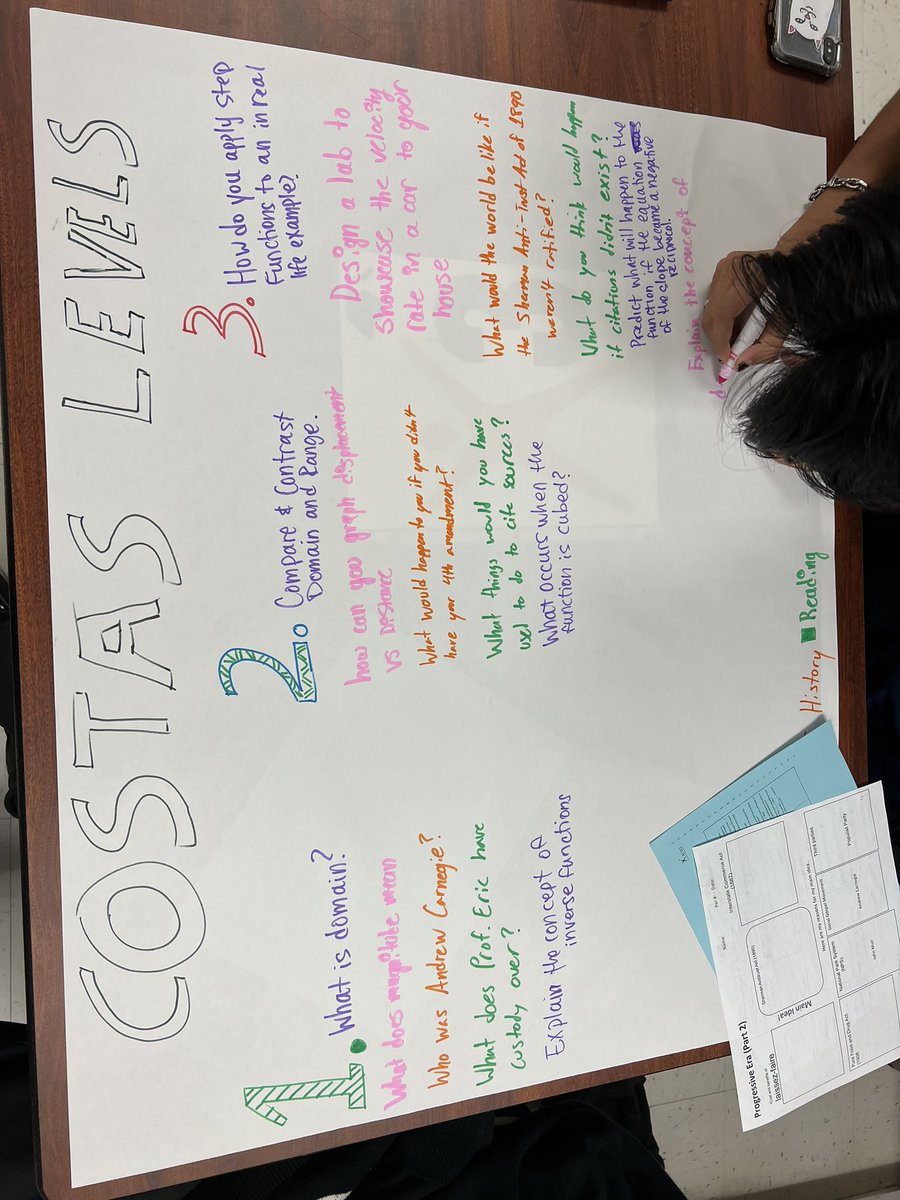 COSTAS LEVELS
1.
What is domain?
What does magnitude mean
Who was Andrew Carnegie?
What does Prof. Eric have
custody over?
Explain the concept of
inverse functions
2.
Compare & Contrast
Domain and Range.
how can you graph displacement
vs Distance
What would happen to you if you didn't
have your 4th amendment?
What things would you have
used to do to cite sources?
What occurs when the
function is cubed?
3.
How do you apply step
Functions to an in real
life example?
Design a lab to
showcase the velocity
rate in a car to your
house
What would the would be like if
the Sherman Anti-Trust Act of 1890
weren't ratified?
What do you think would happen
if citations didn't exist?
Predict what will happen to the
function if the equation
of the slope became a negative
reciprocal
Explain the concept of
d
History
Reading
Progressive Era (Part 2)
Name:
Per #:
Date:
laissez-faire
Sherman Antitrust Act (1890)
Interstate Commerce Act
(1887)
Main Idea!
Here are my reasons for my main idea.
Social Gospel Movement
Third parties
Pure Food and Drug Act
1906
National Park System
(NPS)
John Muir
Andrew Carnegie
Populist Party